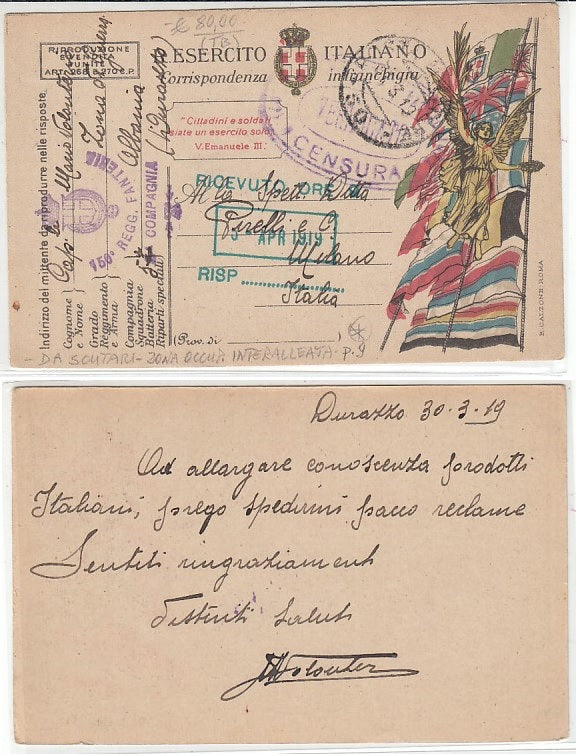 € 80,00
(TB)
RIPRODUZIONE
E VENDITA
PUNITE
ART. 268 E 270 C.P.
ESERCITO ITALIANO
Corrispondenza in franchigia
"Cittadini e soldati
siate un esercito solo"
V. Emanuele III.
CENSURA
Indirizzo del mittente da riprodurre nelle risposte
Cognome e Nome
Grado
Reggimento e Arma
Compagnia
Squadrone
Batteria
Riparti speciali
Cap.
Mario
Zona
Albania
(Durazzo)
156° REGG. FANTERIA
COMPAGNIA
RICEVUTO ORE
APR 1919
RISP
Alla Spett. Ditta
Pirelli e C.
Milano
Italia
(Prov. di
DA SCUTARI - ZONA OCCUP. INTERALLEATA - p. 9
E. CALZONE-ROMA
Durazzo 30-3-19
Ad allargare conoscenza prodotti
Italiani, prego spedirmi pacco reclame
Sentiti ringraziamenti
Distinti Saluti